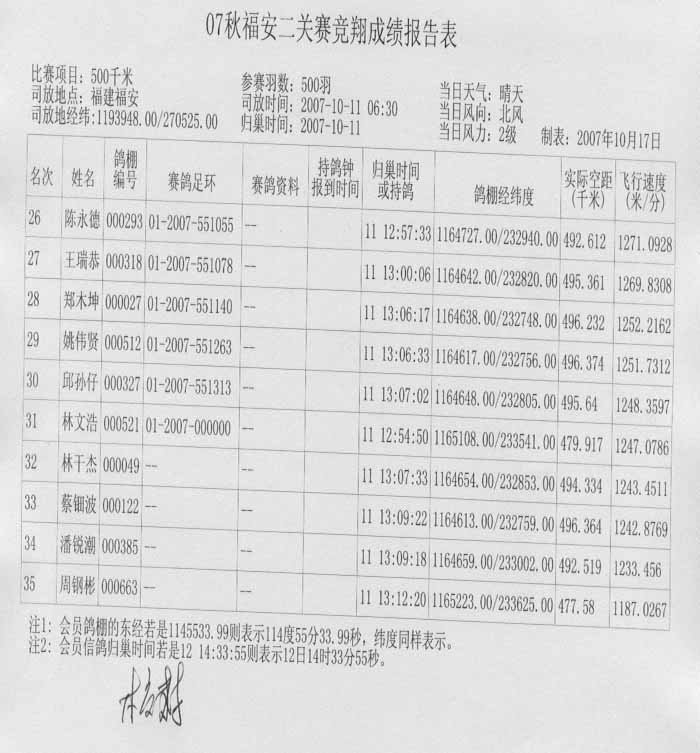 07秋福安二关赛竞翔成绩报告表
比赛项目: 500千米 参赛羽数: 500羽 当日天气: 晴天
司放地点: 福建福安 司放时间: 2007-10-11 06:30 当日风向: 北风
司放地经纬:1193948.00/270525.00 归巢时间: 2007-10-11 当日风力: 2级 制表: 2007年10月17日
名次 姓名 鸽棚编号 赛鸽足环 赛鸽资料 持鸽钟报到时间 归巢时间或持鸽 鸽棚经纬度 实际空距(千米) 飞行速度(米/分)
26 陈永德 000293 01-2007-551055 -- 11 12:57:33 1164727.00/232940.00 492.612 1271.0928
27 王瑞恭 000318 01-2007-551078 -- 11 13:00:06 1164642.00/232820.00 495.361 1269.8308
28 郑木坤 000027 01-2007-551140 -- 11 13:06:17 1164638.00/232748.00 496.232 1252.2162
29 姚伟贤 000512 01-2007-551263 -- 11 13:06:33 1164617.00/232756.00 496.374 1251.7312
30 邱孙仔 000327 01-2007-551313 -- 11 13:07:02 1164648.00/232805.00 495.64 1248.3597
31 林文浩 000521 01-2007-000000 -- 11 12:54:50 1165108.00/233541.00 479.917 1247.0786
32 林干杰 000049 -- -- 11 13:07:33 1164654.00/232853.00 494.334 1243.4511
33 蔡钿波 000122 -- -- 11 13:09:22 1164613.00/232759.00 496.364 1242.8769
34 潘锐潮 000385 -- -- 11 13:09:18 1164659.00/233002.00 492.519 1233.456
35 周钢彬 000663 -- -- 11 13:12:20 1165223.00/233625.00 477.58 1187.0267
注1: 会员鸽棚的东经若是1145533.99则表示114度55分33.99秒，纬度同样表示。
注2: 会员信鸽归巢时间若是12 14:33:55则表示12日14时33分55秒。